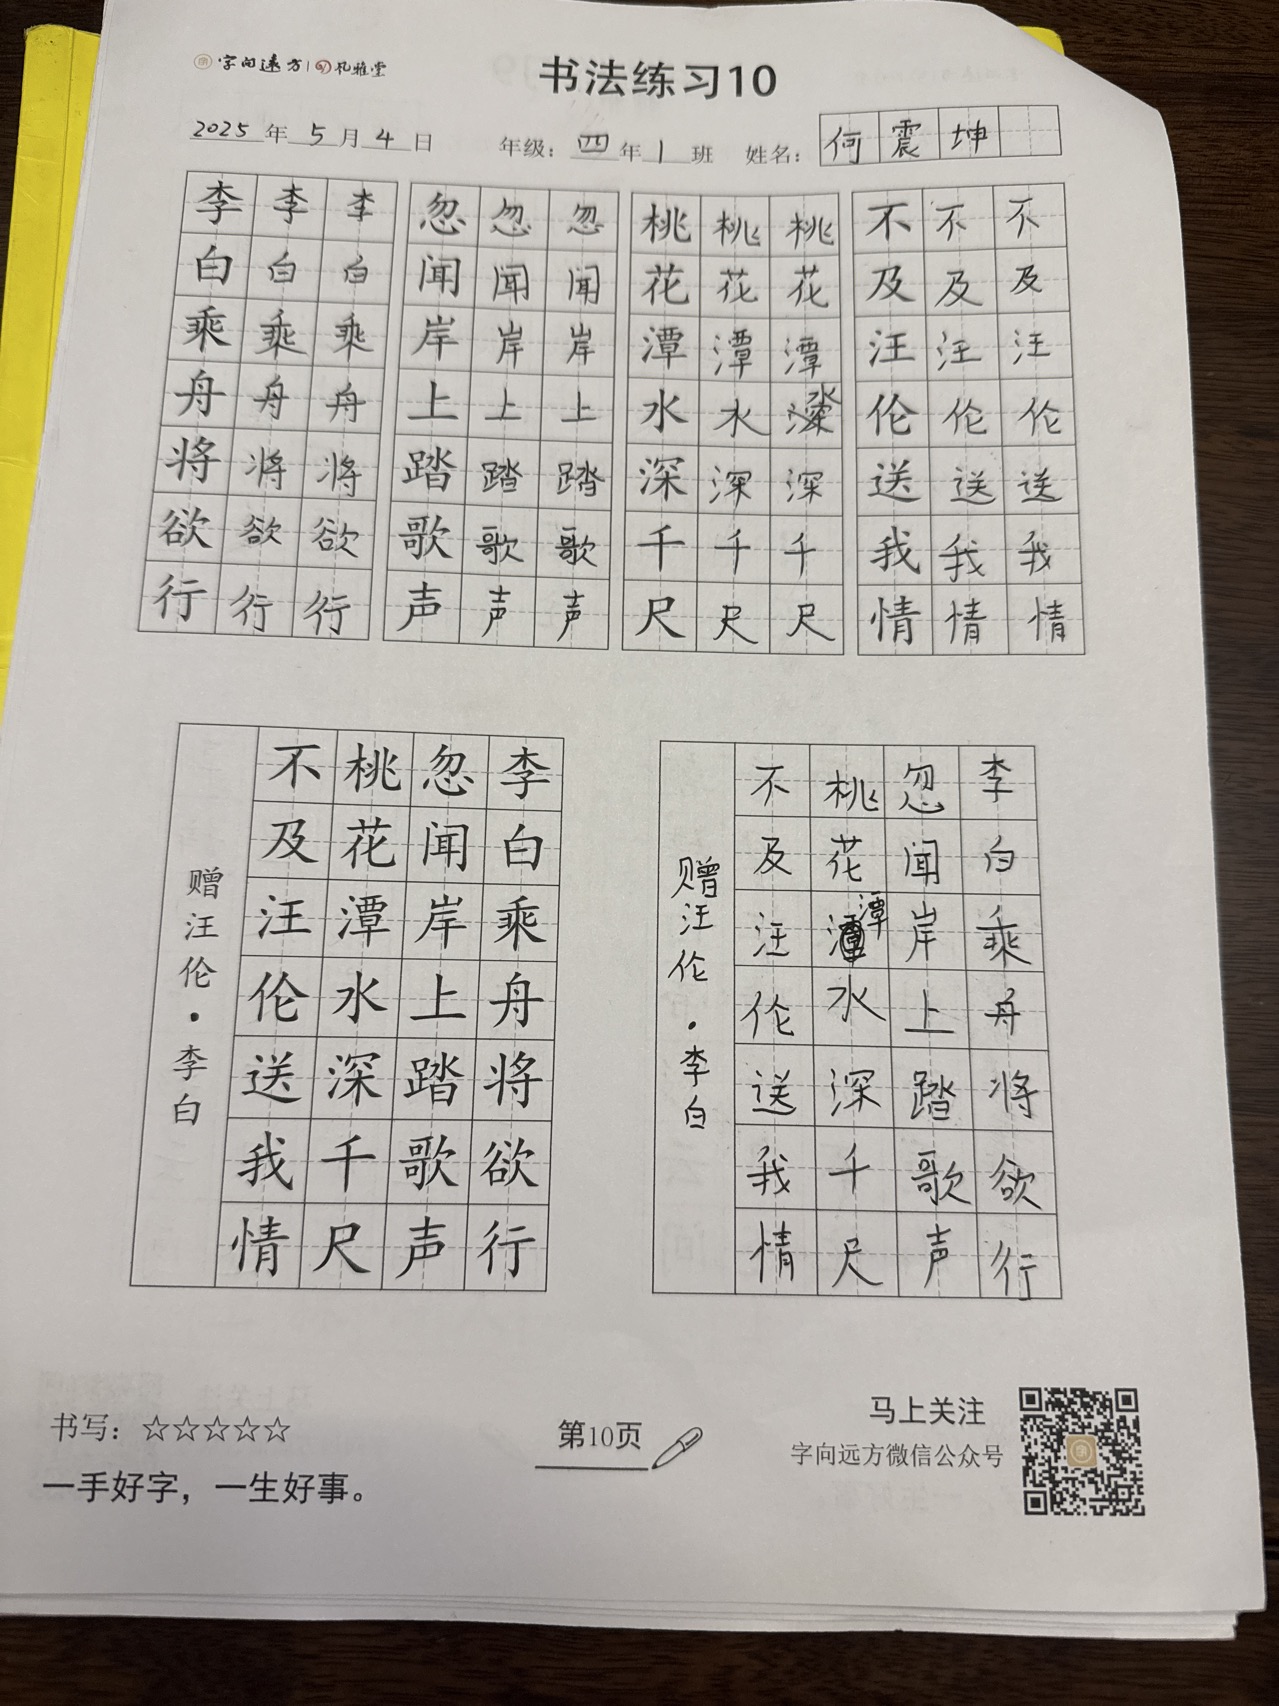 字向远方 | 孔雅堂
书法练习10
2025年5月4日 年级：四年1班 姓名：何震坤
李李李 忽忽忽 桃桃桃 不不不
白白白 闻闻闻 花花花 及及及
乘乘乘 岸岸岸 潭潭潭 汪汪汪
舟舟舟 上上上 水水水 伦伦伦
将将将 踏踏踏 深深深 送送送
欲欲欲 歌歌歌 千千千 我我我
行行行 声声声 尺尺尺 情情情
李白乘舟将欲行
忽闻岸上踏歌声
桃花潭水深千尺
不及汪伦送我情
赠汪伦·李白
李白乘舟将欲行
忽闻岸上踏歌声
桃花潭水深千尺
不及汪伦送我情
赠汪伦·李白
书写：☆☆☆☆☆
一手好字，一生好事。
第10页
马上关注
字向远方微信公众号